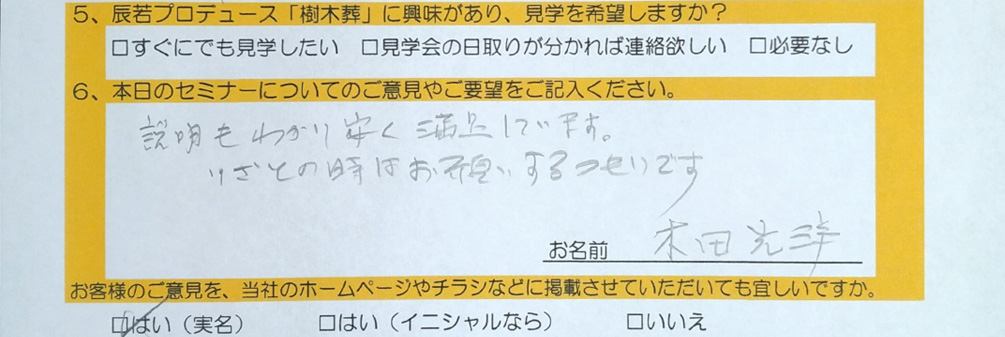 5、辰若プロデュース「樹木葬」に興味があり、見学を希望しますか？
□すぐにでも見学したい　□見学会の日取りが分かれば連絡欲しい　□必要なし
6、本日のセミナーについてのご意見やご要望をご記入ください。
説明もわかり安く満足しています。
いざとの時はお願いするつもりです
お名前 木田光洋
お客様のご意見を、当社のホームページやチラシなどに掲載させていただいても宜しいですか。
☑はい（実名）　□はい（イニシャルなら）　□いいえ